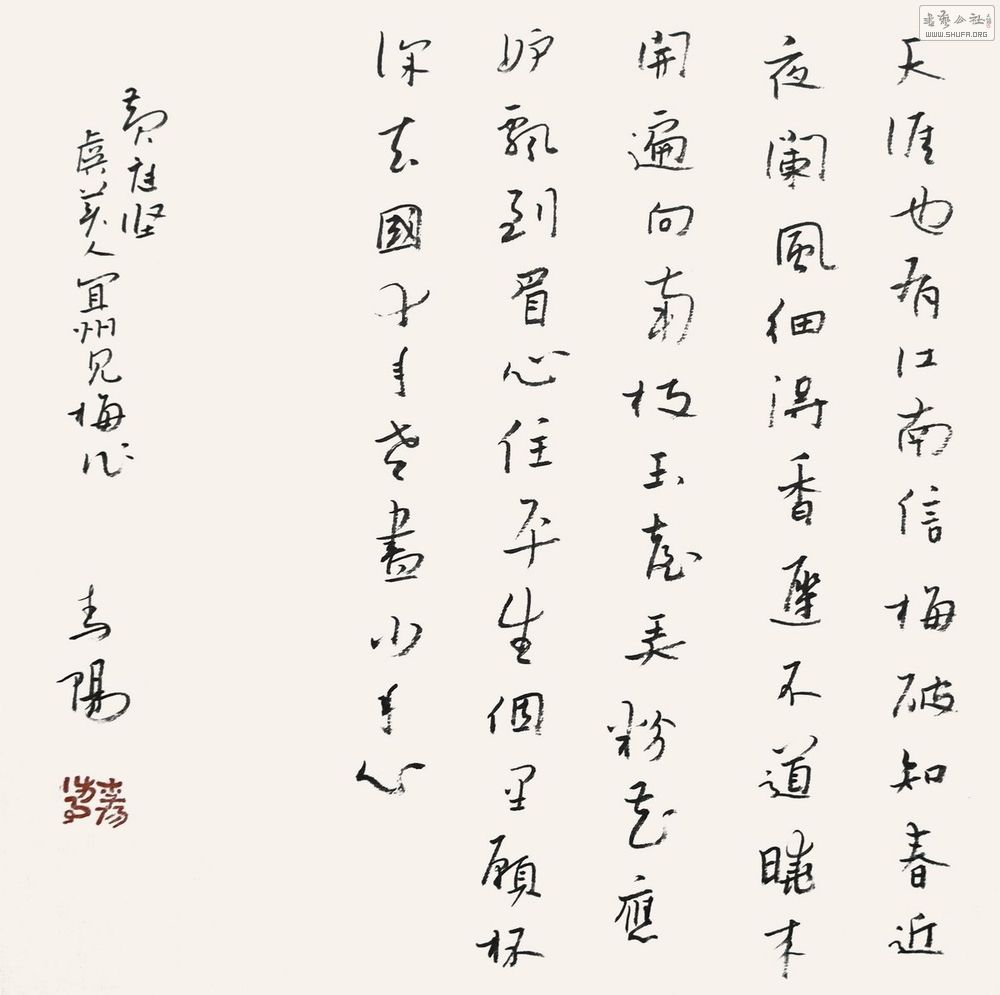 書藝公社
WWW.SHUFA.ORG
天涯也有江南信梅破知春近
夜闌風細得香遲不道曉来
開遍向南枝玉臺弄粉花應
妒飄到眉心住平生個里願杯
深去國十年老盡少年心
黄庭坚
虞美人宜州见梅作
陽